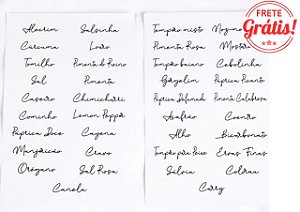 FRETE
Grátis!
Alecrim Salsinha
Cúrcuma Louro
Tomilho Pimenta do Reino
Sal Pimenta
Caseiro Chimichurri
Cominho Lemon Pepper
Páprica Doce Cayena
Manjericão Cravo
Orégano Sal Rosa
Canela
Tempero misto
Pimenta Rosa Mostarda
Tempero baiano Cebolinha
Gergelim Páprica Picante
Páprica Defumada Pimenta Calabresa
Açafrão Coentro
Alho Bicarbonato
Tempero para Peixe Ervas Finas
Sálvia Colorau
Curry